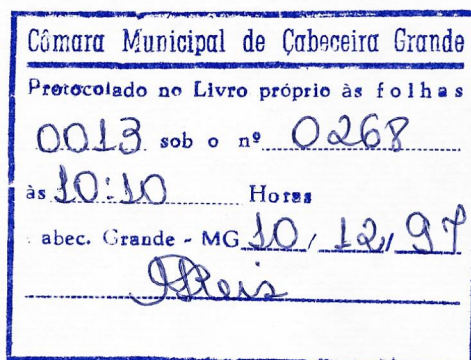 Câmara Municipal de Cabeceira Grande
Protocolado no Livro próprio às folhas
0013 sob o nº 0268
às 10:10 Horas
abec. Grande - MG 10/12/97
Reis